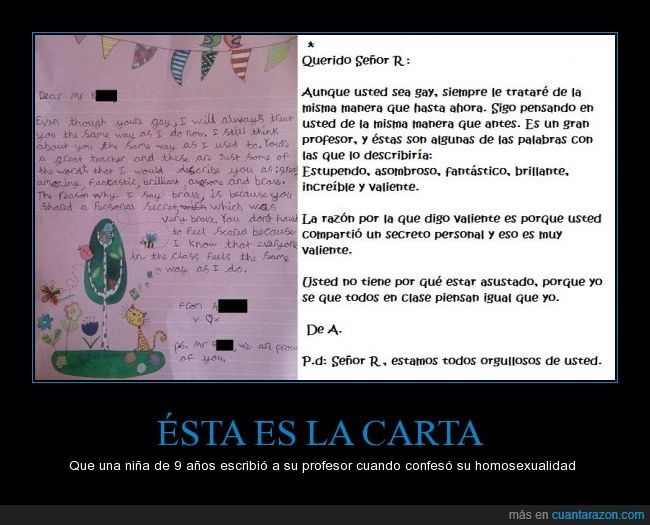 Dear Mr R
Even though you're gay, I will always treat
you the same way as I do now. I still think
about you the same way as I used to. You're
a great teacher and these are just some of
the words that I would describe you as: great
amazing, Fantastic, brilliant, awsome and brave.
The reason why I say brave, is because you
shared a Personal Secret, which which was
very brave. You don't have
to feel scared because
I know that everyone
in the class feels the same
way as I do.
From A
x ♡ x
ps. Mr R, we are prou
of you.
*
Querido Señor R :
Aunque usted sea gay, siempre le trataré de la
misma manera que hasta ahora. Sigo pensando en
usted de la misma manera que antes. Es un gran
profesor, y éstas son algunas de las palabras con
las que lo describiría:
Estupendo, asombroso, fantástico, brillante,
increíble y valiente.
La razón por la que digo valiente es porque usted
compartió un secreto personal y eso es muy
valiente.
Usted no tiene por qué estar asustado, porque yo
se que todos en clase piensan igual que yo.
De A.
P.d: Señor R , estamos todos orgullosos de usted.
ÉSTA ES LA CARTA
Que una niña de 9 años escribió a su profesor cuando confesó su homosexualidad
más en cuantarazon.com